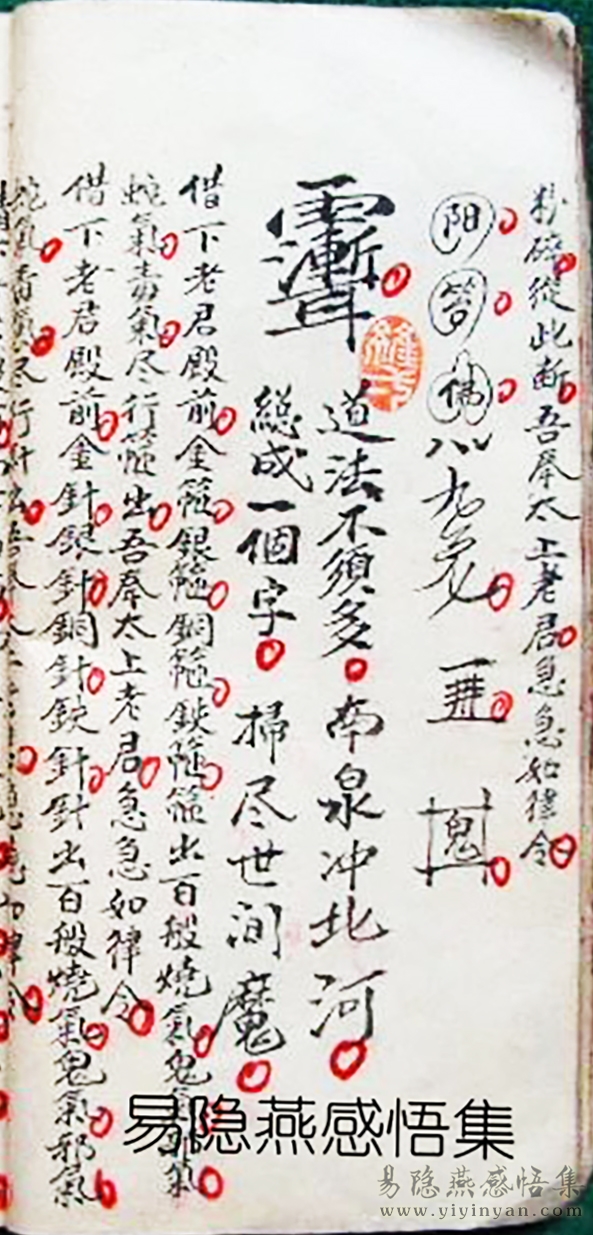 粉碎從此断吾奉太上老君急急如律令
阳
佛
鬼
道法不須多南泉冲北河
總成一個字掃尽世间魔
借下老君殿前金箍銀箍銅箍鉄箍箍出百般燒氣鬼氣
蛇氣毒氣尽行箍出吾奉太上老君急急如律令
借下老君殿前金針銀針銅針鉄針針出百般燒氣鬼氣邪氣
蛇氣毒氣尽行針出吾奉
易隐燕感悟集
易隐燕感悟集
www.yiyinyan.com